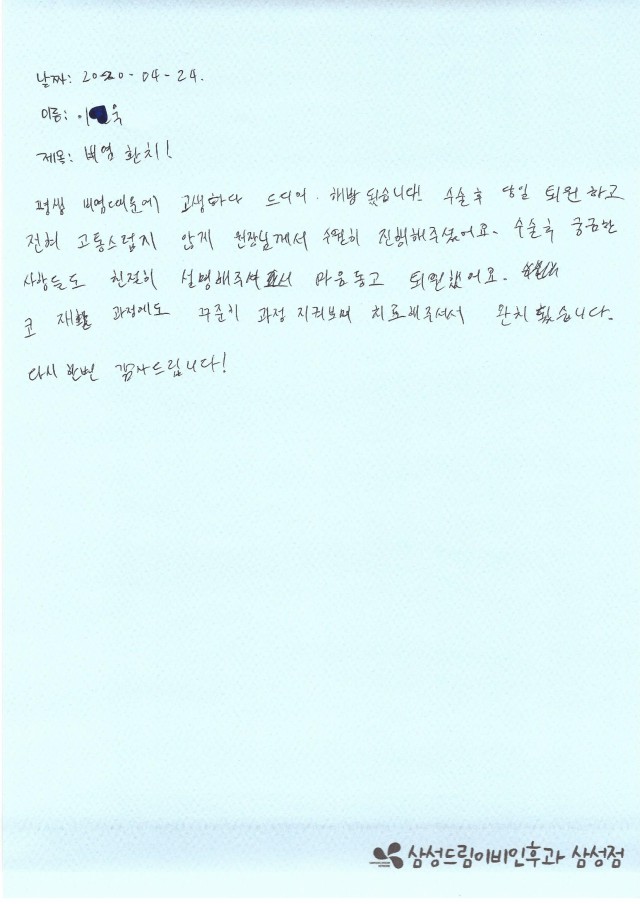 날짜: 2020-04-24.
이름: 이 욱
제목: 비염 완치!
평생 비염때문에 고생하다 드디어 해방 됐습니다! 수술후 당일 퇴원하고
전혀 고통스럽지 않게 원장님께서 수월히 진행해주셨어요. 수술후 궁금한
사항들도 친절히 설명해주셔서 마음놓고 퇴원했어요.
코 재활 과정에도 꾸준히 과정 지켜보며 치료해주셔서 완치 됐습니다.
다시 한번 감사드립니다!
삼성드림이비인후과 삼성점